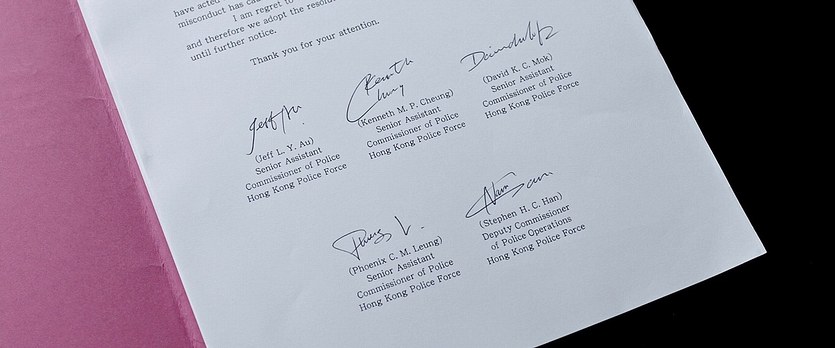 have acted
misconduct has ca
I am regret to
and therefore we adopt the resolu
until further notice.
Thank you for your attention.
(Jeff L. Y. Au)
Senior Assistant
Commissioner of Police
Hong Kong Police Force
Kenneth
Chung
(Kenneth M. P. Cheung)
Senior Assistant
Commissioner of Police
Hong Kong Police Force
(David K. C. Mok)
Senior Assistant
Commissioner of Police
Hong Kong Police Force
(Phoenix C. M. Leung)
Senior Assistant
Commissioner of Police
Hong Kong Police Force
(Stephen H. C. Han)
Deputy Commissioner
of Police Operations
Hong Kong Police Force